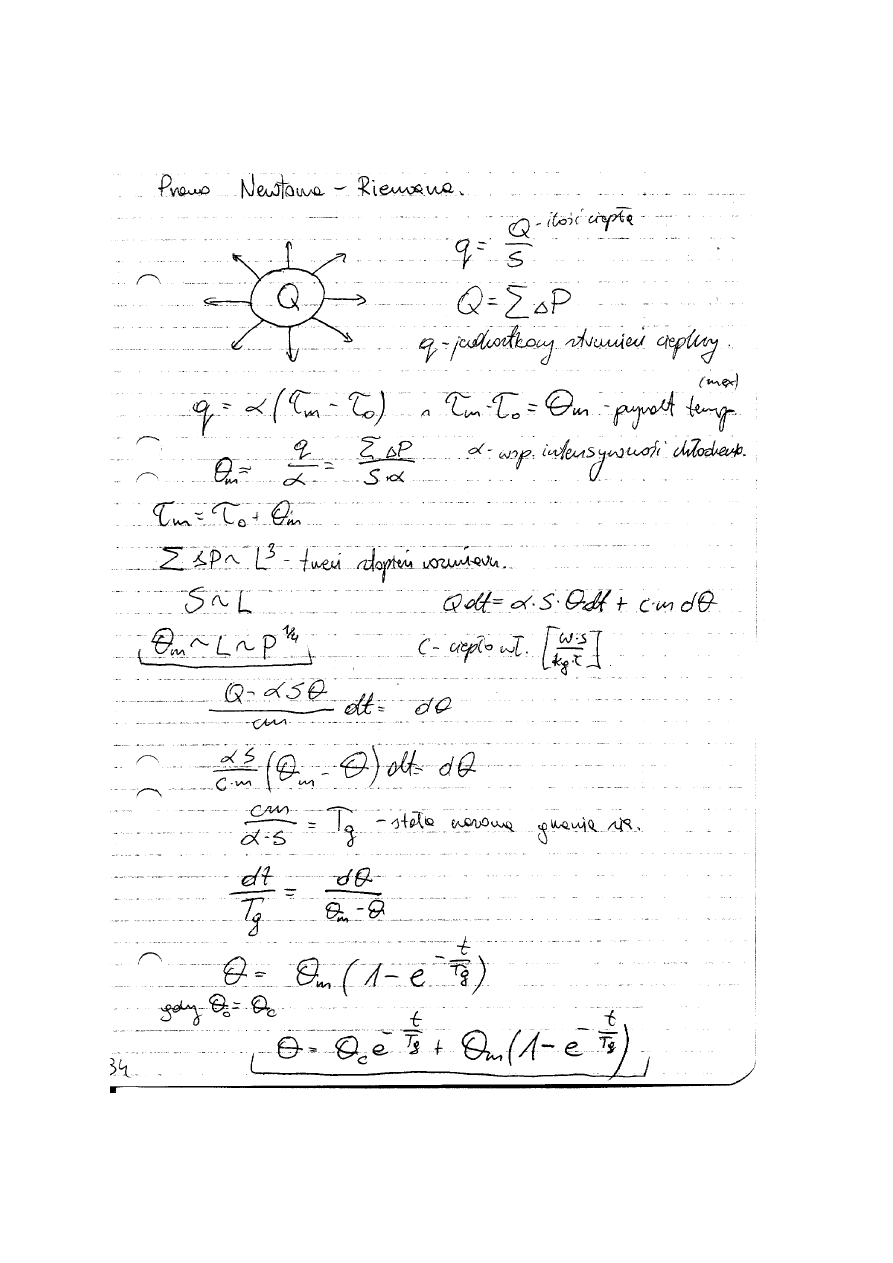 Prawo Newtona - Riemana.
q = Q/S - ilość ciepła
Q
Q = Σ ΔP
q - jednostkowy strumień cieplny.
q = α(τm - τo) ∧ τm - τo = Θm - przyrost temp. (max)
Θm = q/α = ΣΔP/(S·α) α - wsp. intensywności chłodzenia.
τm = τo + Θm
Σ ΔP ~ L³ - trzeci stopień rozmiaru.
S ~ L Qdt = α·S·Θdt + c·m dΘ
Θm ~ L ~ P^1/4 C - ciepło wł. [W·s/kg·τ].
(Q - αSΘ)/cm dt = dΘ
αS/(c·m) (Θm - Θ) dt = dΘ
cm/(α·S) = Tg - stała czasowa grzania się.
dt/Tg = dΘ/(Θm - Θ)
Θ = Θm (1 - e^(-t/Tg))
gdy Θo = Θc
Θ = Θc e^(-t/Tg) + Θm (1 - e^(-t/Tg))
34